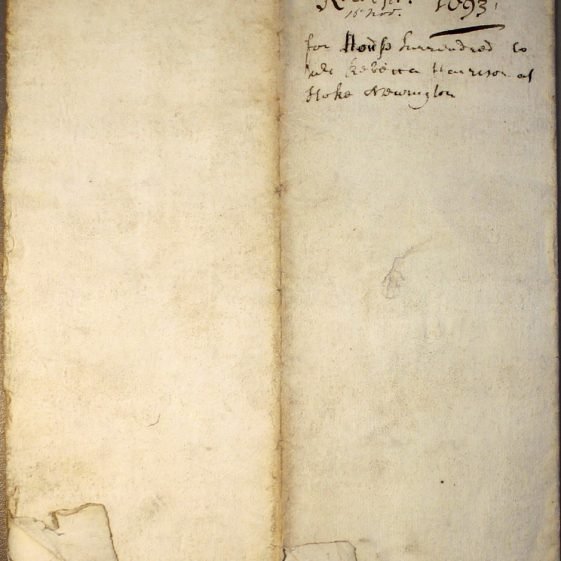 1693
16 Nov.
for House Surrendred to
Rebecca Harrison at
Stoke Newington